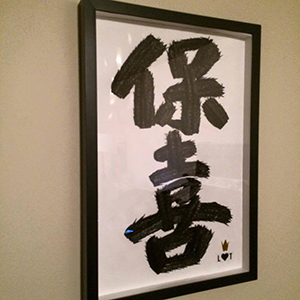 保
喜
L♥T